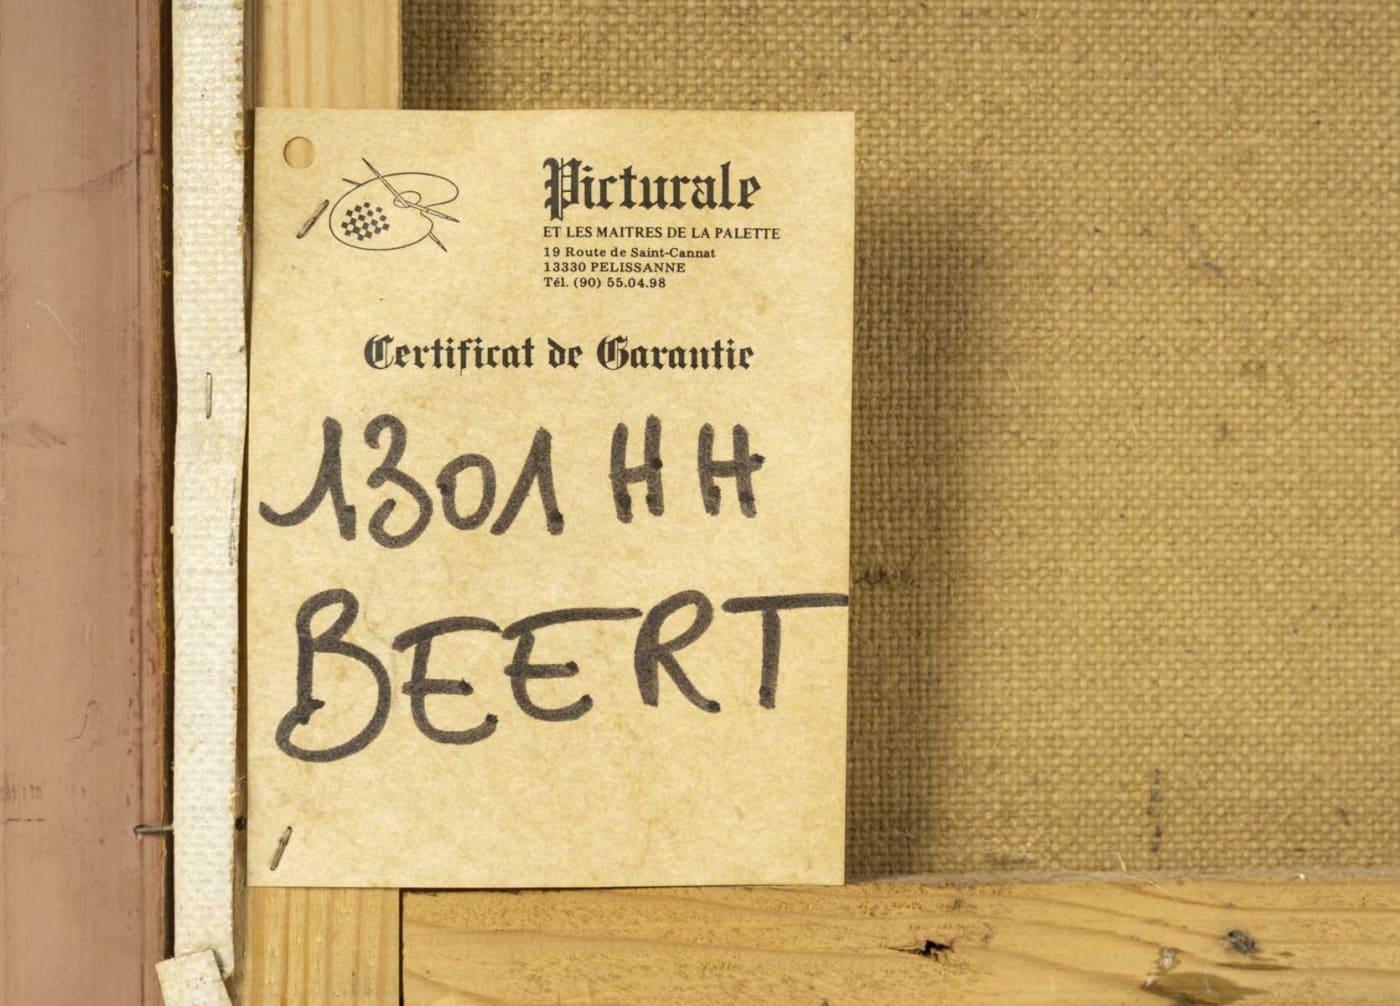 Picturale
ET LES MAITRES DE LA PALETTE
19 Route de Saint-Cannat
13330 PELISSANNE
Tél. (90) 55.04.98
Certificat de Garantie
1301 HH
BEERT